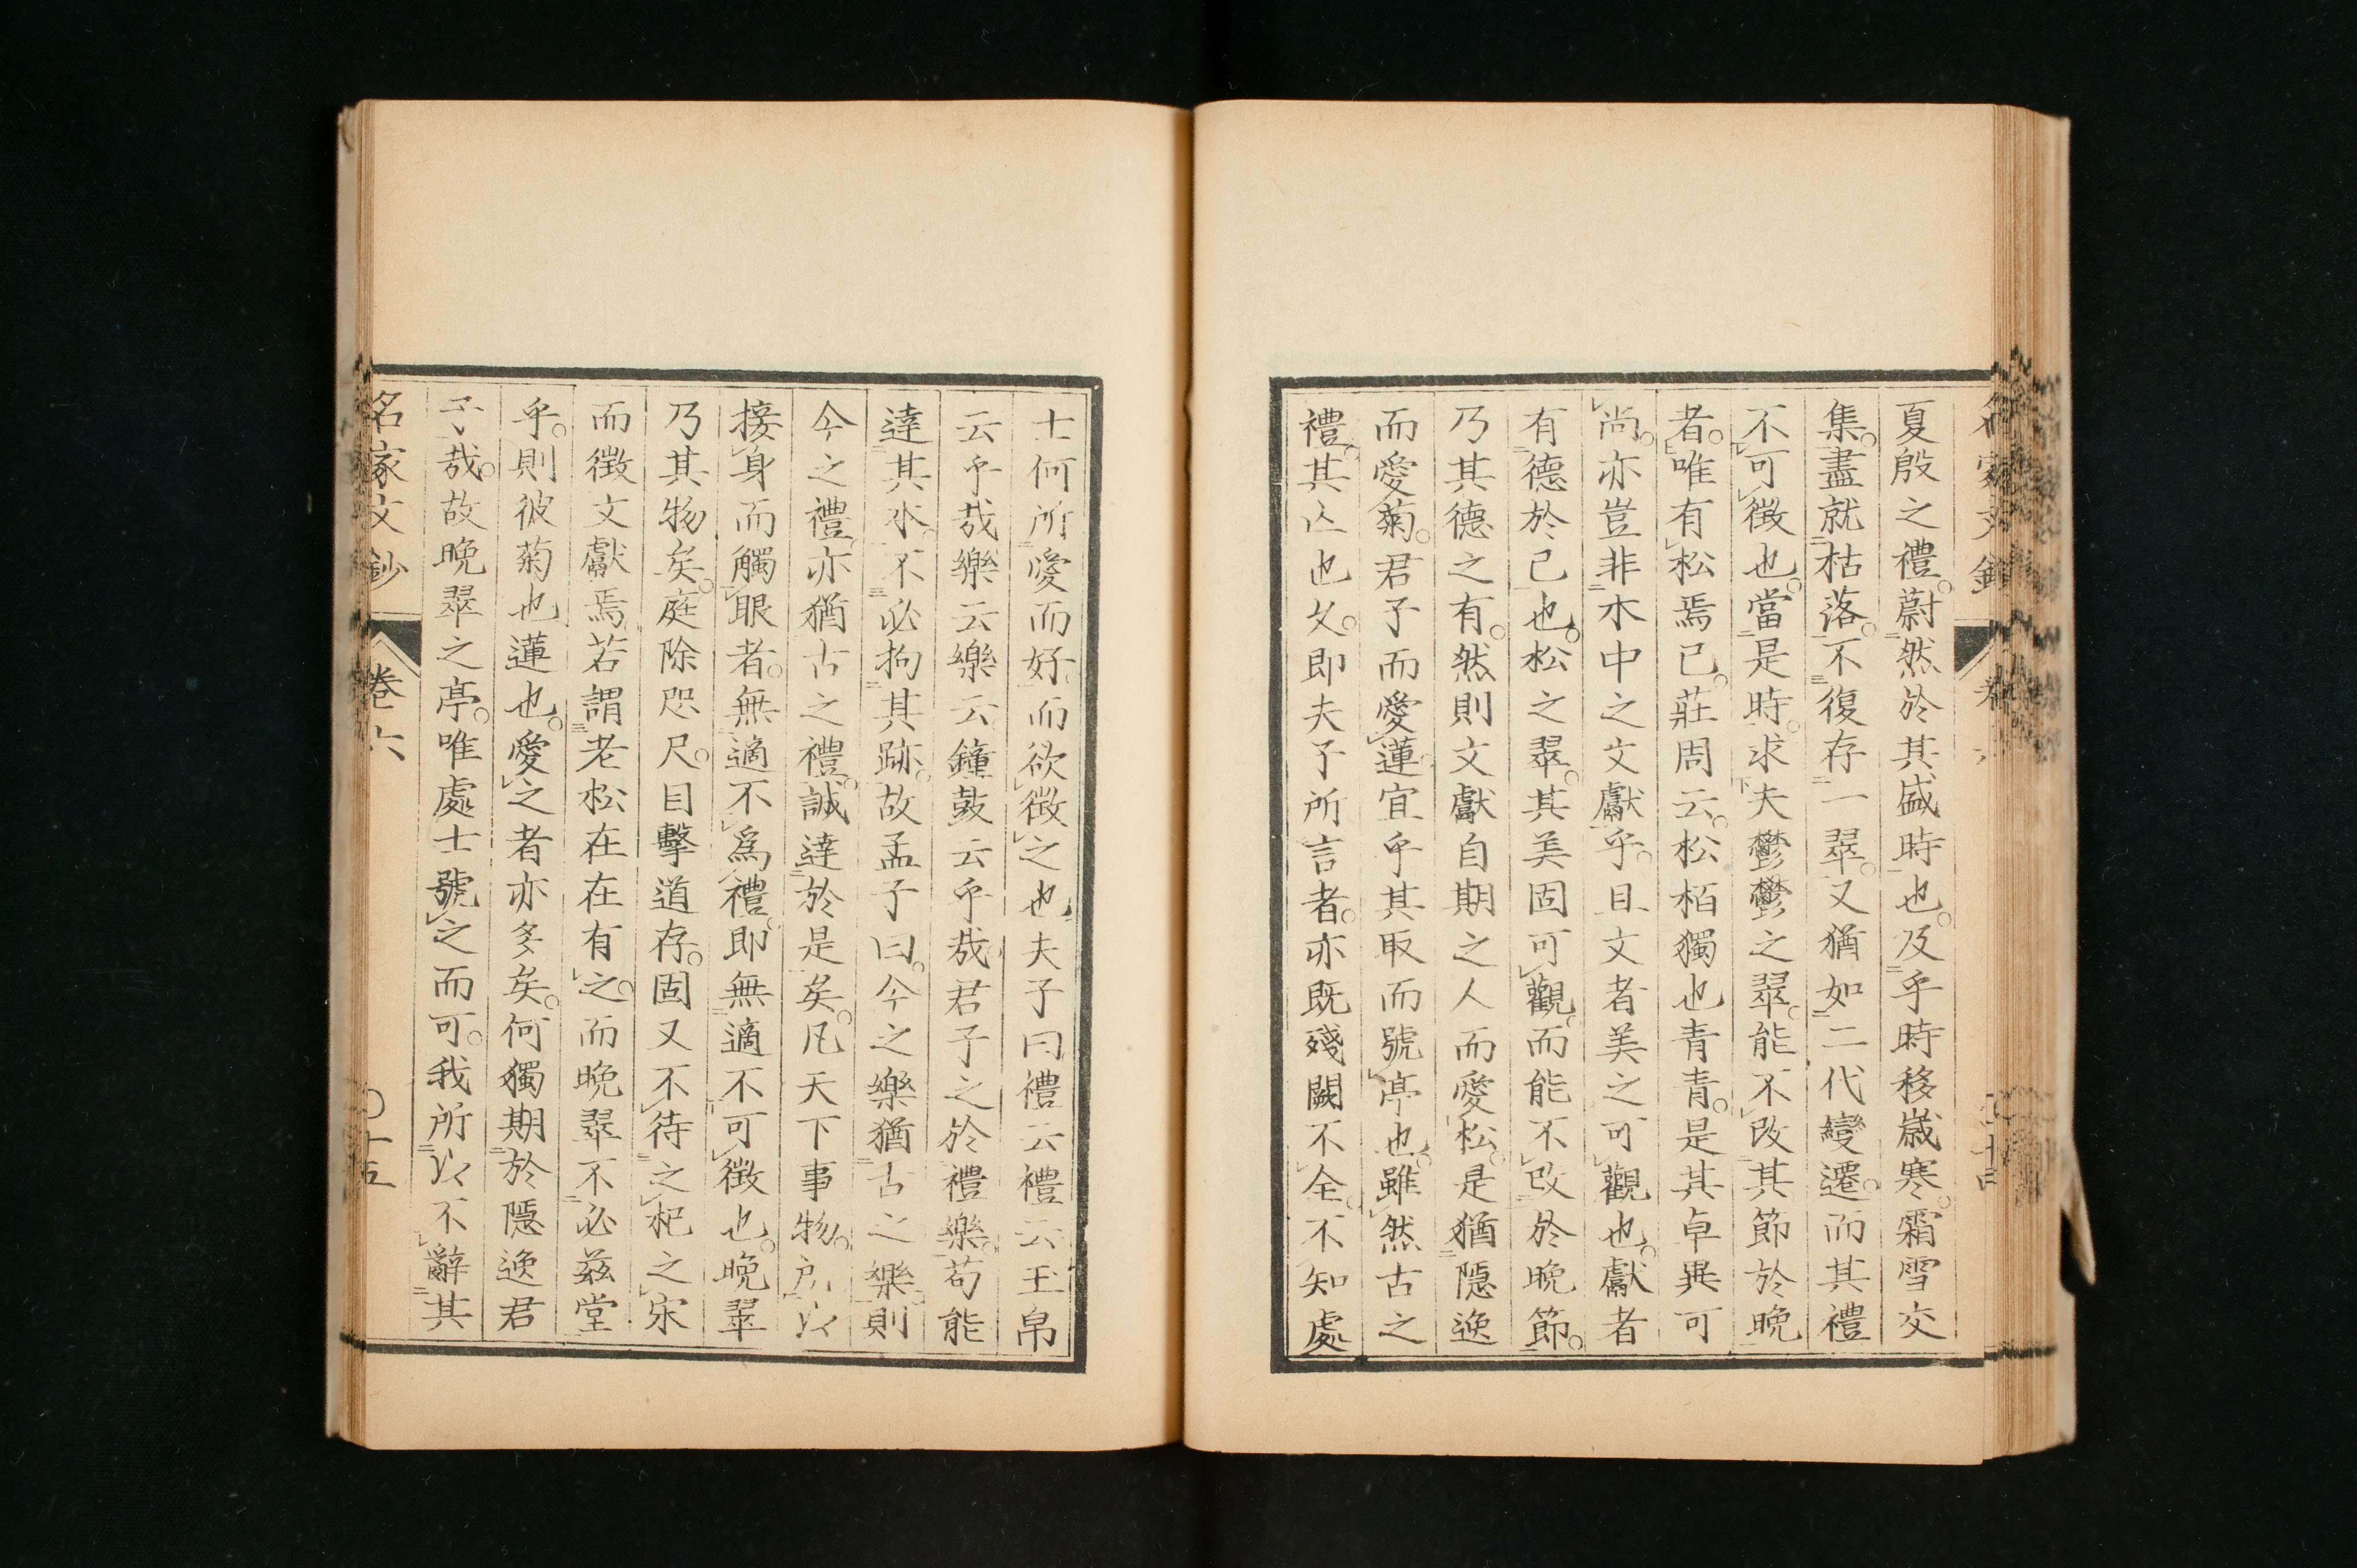 夏殷之禮。蔚然於其盛時也。及乎時移歲寒。霜雪交
集。盡就枯落。不復存一翠。又猶如二代變遷。而其禮
不可徵也。當是時。求夫鬱鬱之翠。能不改其節於晚
者。唯有松焉已。莊周云。松栢獨也青青。是其卓異可
尚。亦豈非木中之文獻乎。且文者美之可觀也。獻者
有德於己也。松之翠。其美固可觀。而能不改於晚節。
乃其德之有。然則文獻自期之人而愛松。是猶隱逸
而愛菊。君子而愛蓮。宜乎其取而號亭也。雖然古之
禮。其亾也久。即夫子所言者。亦既殘闕不全。不知處
士何所愛而好。而欲徵之也。夫子曰禮云禮云玉帛
云乎哉樂云樂云鐘鼓云乎哉。君子之於禮樂。苟能
達其本。不必拘其跡。故孟子曰。今之樂猶古之樂。則
今之禮。亦猶古之禮。誠達於是矣。凡天下事物。所以
接身而觸眼者。無適不為禮。即無適不可徵也。晚翠
乃其物矣。庭除咫尺。目擊道存。固又不待之杞之宋
而徵文獻焉。若謂老松在在有之。而晚翠不必茲堂
乎。則彼菊也蓮也。愛之者亦多矣。何獨期於隱逸君
子哉。故晚翠之亭。唯處士號之而可。我所以不辭其
名家文鈔
卷六
〇十五